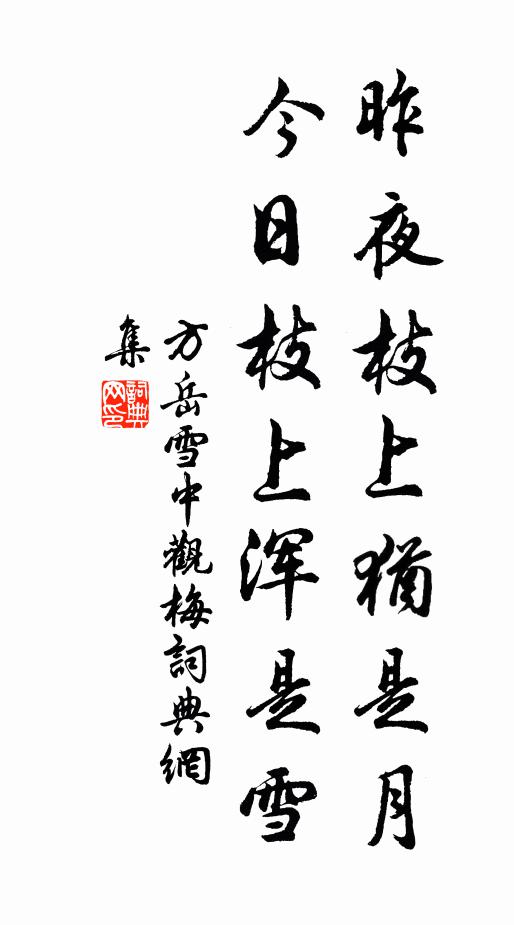 昨夜枝上猶是月
今日枝上浑是雪
方岳雪中觀梅詞典網
集
詞典
网印